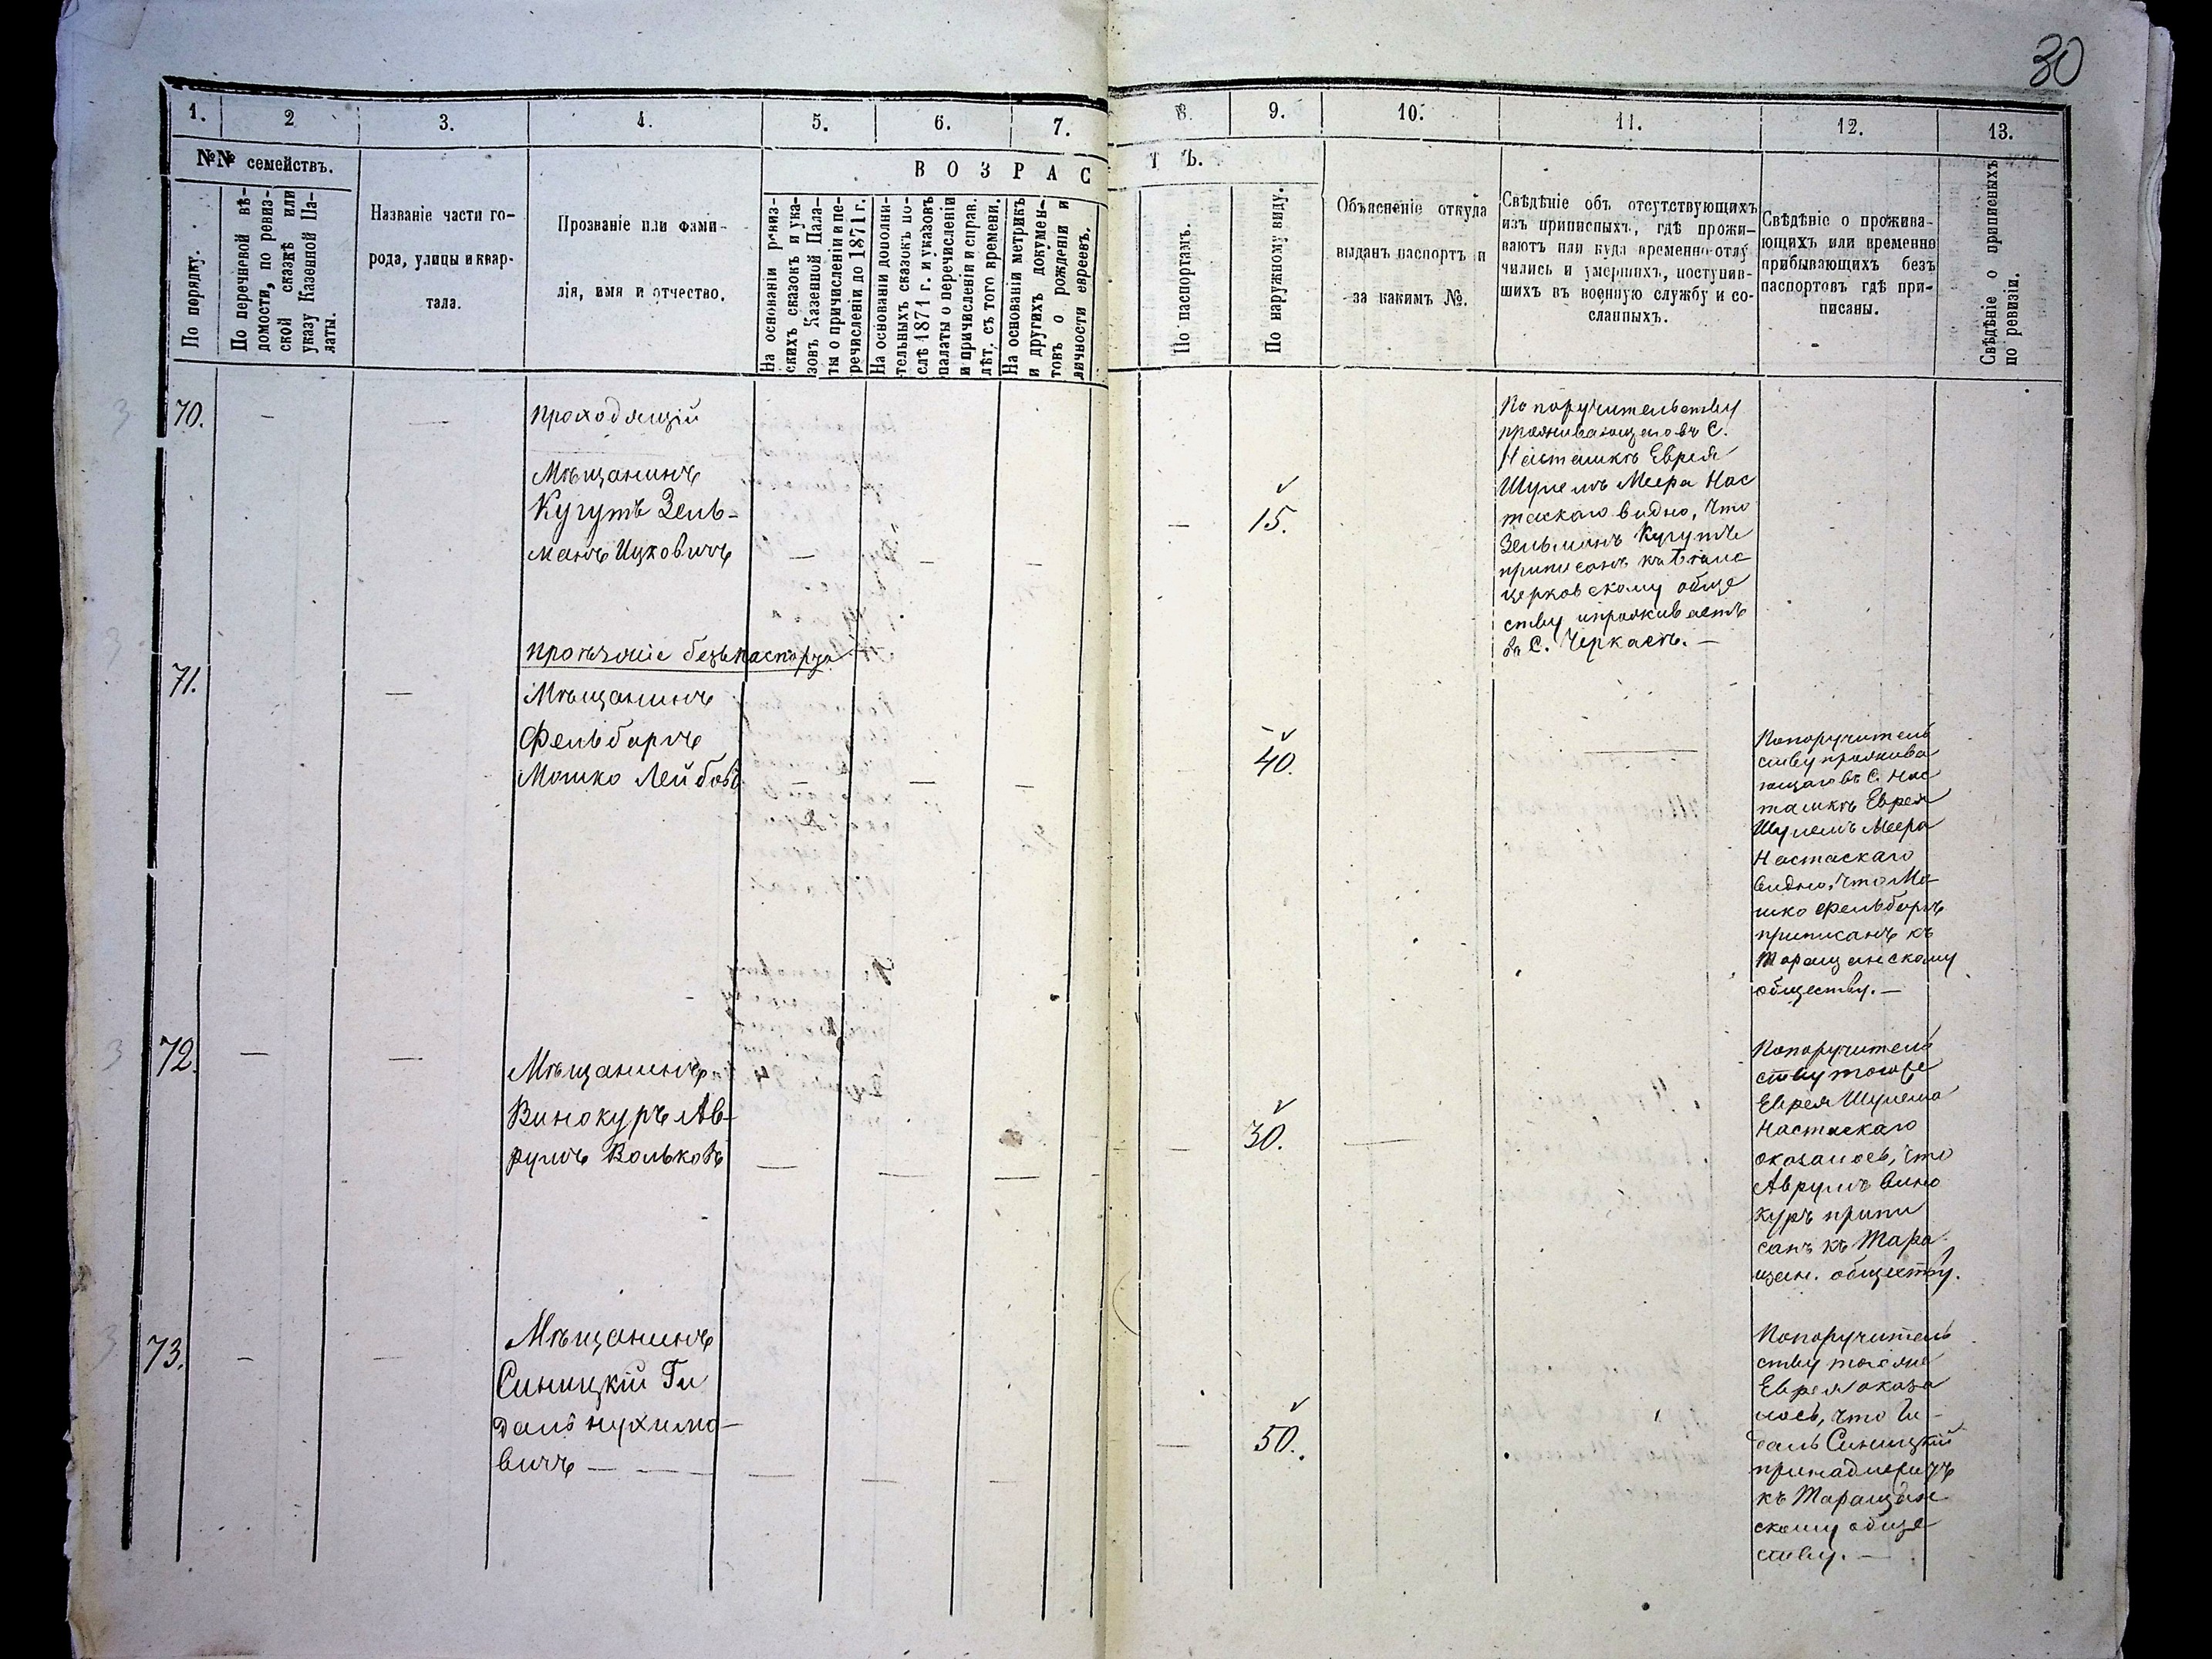 30
1.
2
3.
4.
5.
6.
7.
8.
9.
10.
11.
12.
13.
№№ семействъ.
По порядку.
По перечневой вѣ-
домости, по ревиз-
ской сказкѣ или
указу Казенной Па-
латы.
Названіе части го-
рода, улицы и квар-
тала.
Прозваніе или фами-
лія, имя и отчество.
ВОЗРАС
ТЪ.
На основаніи ревиз-
скихъ сказокъ и ука-
зовъ Казенной Пала-
ты о причисленіи и пе-
речисленіи до 1871 г.
На основаніи дополни-
тельныхъ сказокъ по-
слѣ 1871 г. и указовъ
палаты о перечисленіи
и причисленіи и справ.
лѣт. съ того времени.
На основаніи метрикъ
и другихъ докумен-
товъ о рожденіи и
личности евреевъ.
По паспортамъ.
По наружному виду.
Объясненіе откуда
выданъ паспортъ и
за какимъ №.
Свѣдѣніе объ отсутствующихъ
изъ приписныхъ, гдѣ прожи-
ваютъ или куда временно отлу
чились и умершихъ, поступив-
шихъ въ военную службу и со-
сланныхъ.
Свѣдѣніе о прожива-
ющихъ или временно
прибывающихъ безъ
паспортовъ гдѣ при-
писаны.
Свѣдѣніе о приписныхъ
по ревизіи.
70.
проходящій
Мѣщанинъ
Кугутъ Зель-
манъ Ицковичъ
15.
По поручительству
проживающаго въ С.
Насташкѣ Еврея
Шулемъ Меера Нас
таскаго видно, что
Зельманъ Кугутъ
приписанъ къ Бѣло
церковскому обще
ству и проживаетъ
въ С. Черкасъ. —
71.
Мѣщанинъ
Фельдбаргъ
Мошко Лейбовъ
40.
По поручитель
ству прожива
ющаго въ С. Нас
ташкѣ Еврея
Шулемъ Меера
Настаскаго
видно, что Мо-
шко
приписанъ къ
Таращанскому
обществу. —
72.
Мѣщанинъ
Винокуръ Ав-
румъ Вольковъ
30.
По поручитель
ству того же
Еврея Шулема
Настаскаго
оказалось, что
Аврумъ Вино
куръ припи
санъ къ Тара
щан. обществу.
73.
Мѣщанинъ
Синицкій Ги
даль Нухимо-
вичъ —
50.
По поручитель
ству того же
Еврея оказа
лось, что Ги-
даль Синицкій
принадлежитъ
къ Таращан
скому обще
ству. —